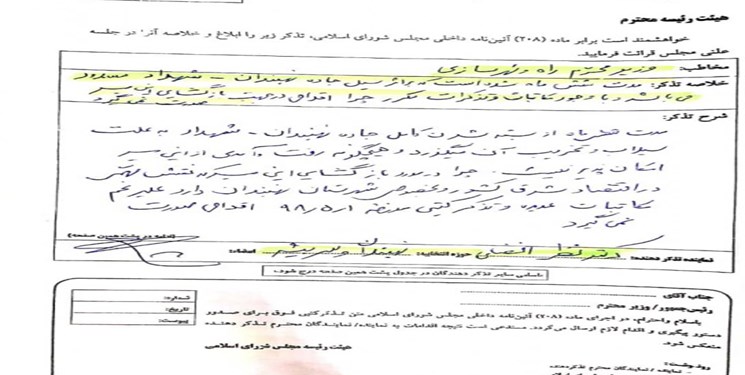 هیئت رئیسه محترم
خواهشمند است برابر ماده (۲۰۸) آئین‌نامه داخلی مجلس شورای اسلامی، تذکر زیر را ابلاغ و خلاصه آنرا در جلسه
علنی مجلس قرائت فرمایید.
مخاطب: وزیر محترم راه و شهرسازی
خلاصه تذکر: مدت شش ماه است که بر اثر سیل جاده نهبندان - شهداد مسدود
می باشد و با وجود مکاتبات و تذکرات مکرر چرا اقدامی در جهت بازگشایی این مسیر
صورت نمی گیرد
شرح تذکر:
مدت شش ماه از بسته شدن کامل جاده نهبندان - شهداد به علت
سیلاب و تخریب آن میگذرد و هیچگونه رفت و آمدی از این مسیر
امکان پذیر نیست. چرا در مورد بازگشایی این مسیر که نقش مهمی
در اقتصاد شرق کشور و بخصوص شهرستان نهبندان دارد علیرغم
مکاتبات عدیده و تذکر کتبی مورخه ۹۸/۵/۱ اقدامی صورت
نمی گیرد
(ادامه در پشت همین صفحه)
نماینده تذکر دهنده: دکتر نظر افضلی حوزه انتخابیه: نهبندان و سربیشه امضاء:
اسامی سایر تذکر دهندگان در جدول پشت همین صفحه درج شود.
جناب آقای
رئیس‌جمهور / وزیر محترم
شماره:
تاریخ:
پیوست:
باسلام واحترام، در اجرای ماده (۲۰۸) آئین‌نامه داخلی مجلس شورای اسلامی متن تذکرکتبی فوق برای صدور
دستور پیگیری و اقدام لازم ارسال می‌گردد. مستدعی است نتیجه اقدامات به نماینده/ نمایندگان محترم تذکر دهنده
منعکس شود.
هیئت رئیسه مجلس شورای اسلامی
رونوشت:
نماینده / نمایندگان محترم تذکردهنده